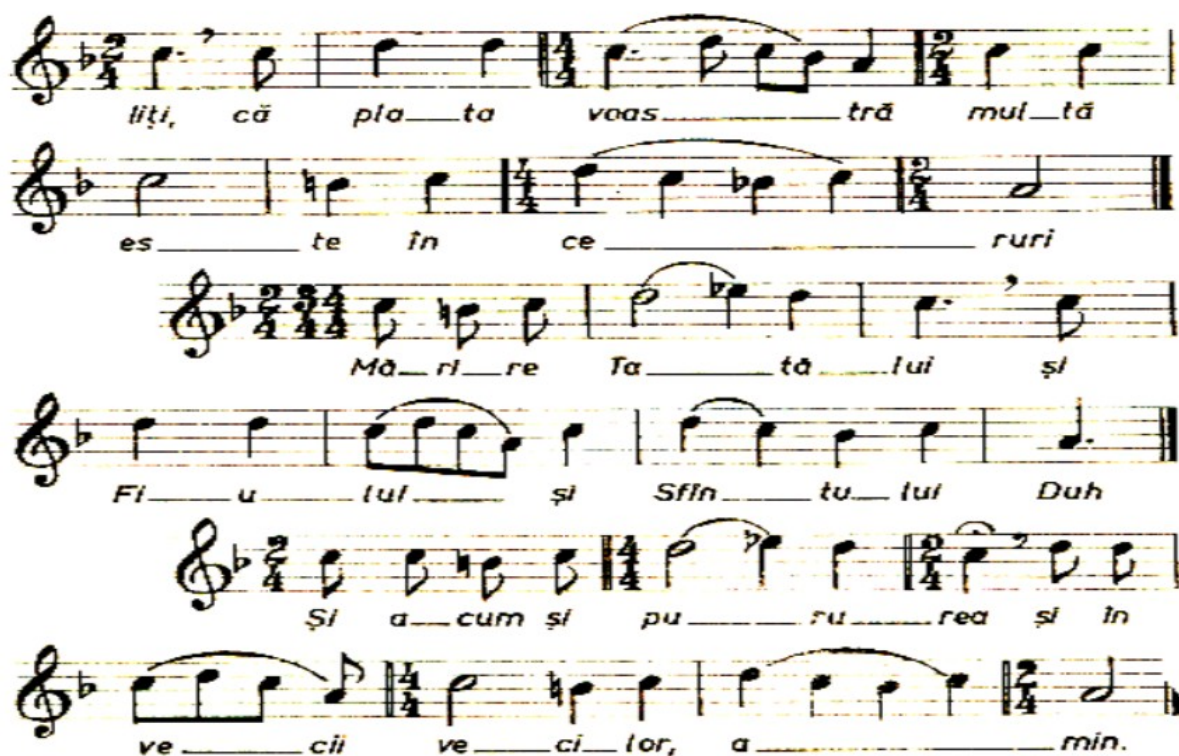 liți, că pla__ta voas____tră mul__tă
es____te în ce____ruri
Mă__ri__re Ta____tă__lui și
Fi__u__lui__ și Sfîn__tu__lui Duh
Și a__cum și pu____ru____rea și în
ve____cii ve__ci__lor, a____min.